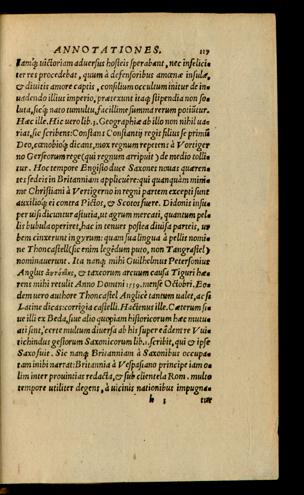 ANNOTATIONES. 117
tamq́ue uictoriam aduersus hosteis sperabant, nec infelici
ter res procedebat, quum à defensoribus amœnæ insulæ,
& diuitis amore captis, consilium occultum initur de in
uadendo illius imperio, prætexunt itaq; stipendia non so
luta, sicq́; nato tumultu, facillime summa rerum potiũtur.
Hæc ille. Hic uero lib.3. Geographiæ ab illo non nihil ua-
riat, sic scribens: Constans Constantij regis filius se primũ
Deo, cænobioq́; dicans, mox regnum repetens à Vortiger
no Gerforum rege (qui regnum arripuit) de medio tolli
tur. Hoc tempore Engisto duce Saxones nouas quæren-
tes sedeis in Britanniam applicuêre: qui quanquàm mini-
me Christiani à Vertigerno in regni partem excepti sunt
auxilioq́; ei contra Pictos, & Scotos fuere. Didonis insu-
per uisi dicuntur astutia, ut agrum mercati, quantum pel
lis bubula operiret, hac in tenues postea diuisa parteis, ur
bem cinxerunt in gyrum: quam sua lingua à pellis nomi-
ne Thoncastell (sic enim legẽdum puto, non Tangrastel)
nominauerunt. Ita namq; mihi Guilhelmus Petersonius
Anglus & taxeorum arcuum causa Tiguri hæ-
rens mihi retulit Anno Domini 1559. mense Octobri. Eo
dem uero authore Thoncastel Anglicè tantum ualet, ac si
Latine dicas: corrigia castelli. Hactenus ille. Cæterum si-
ue illi ex Beda, siue alio quopiam historicorum hæc mutua
ati sunt, certe multum diuersa ab his super eâdem re Vui
tichindus gestorum Saxonicorum lib.1. scribit, qui & ipse
Saxo fuit. Sic namq; Britanniam à Saxonibus occupa-
tam inibi narrat: Britannia à Vespasiano principe iam o-
lim inter prouincias redacta, & sub clientela Rom. multo
tempore utiliter degens, à uicinis nationibus impugna-
h 3 tur